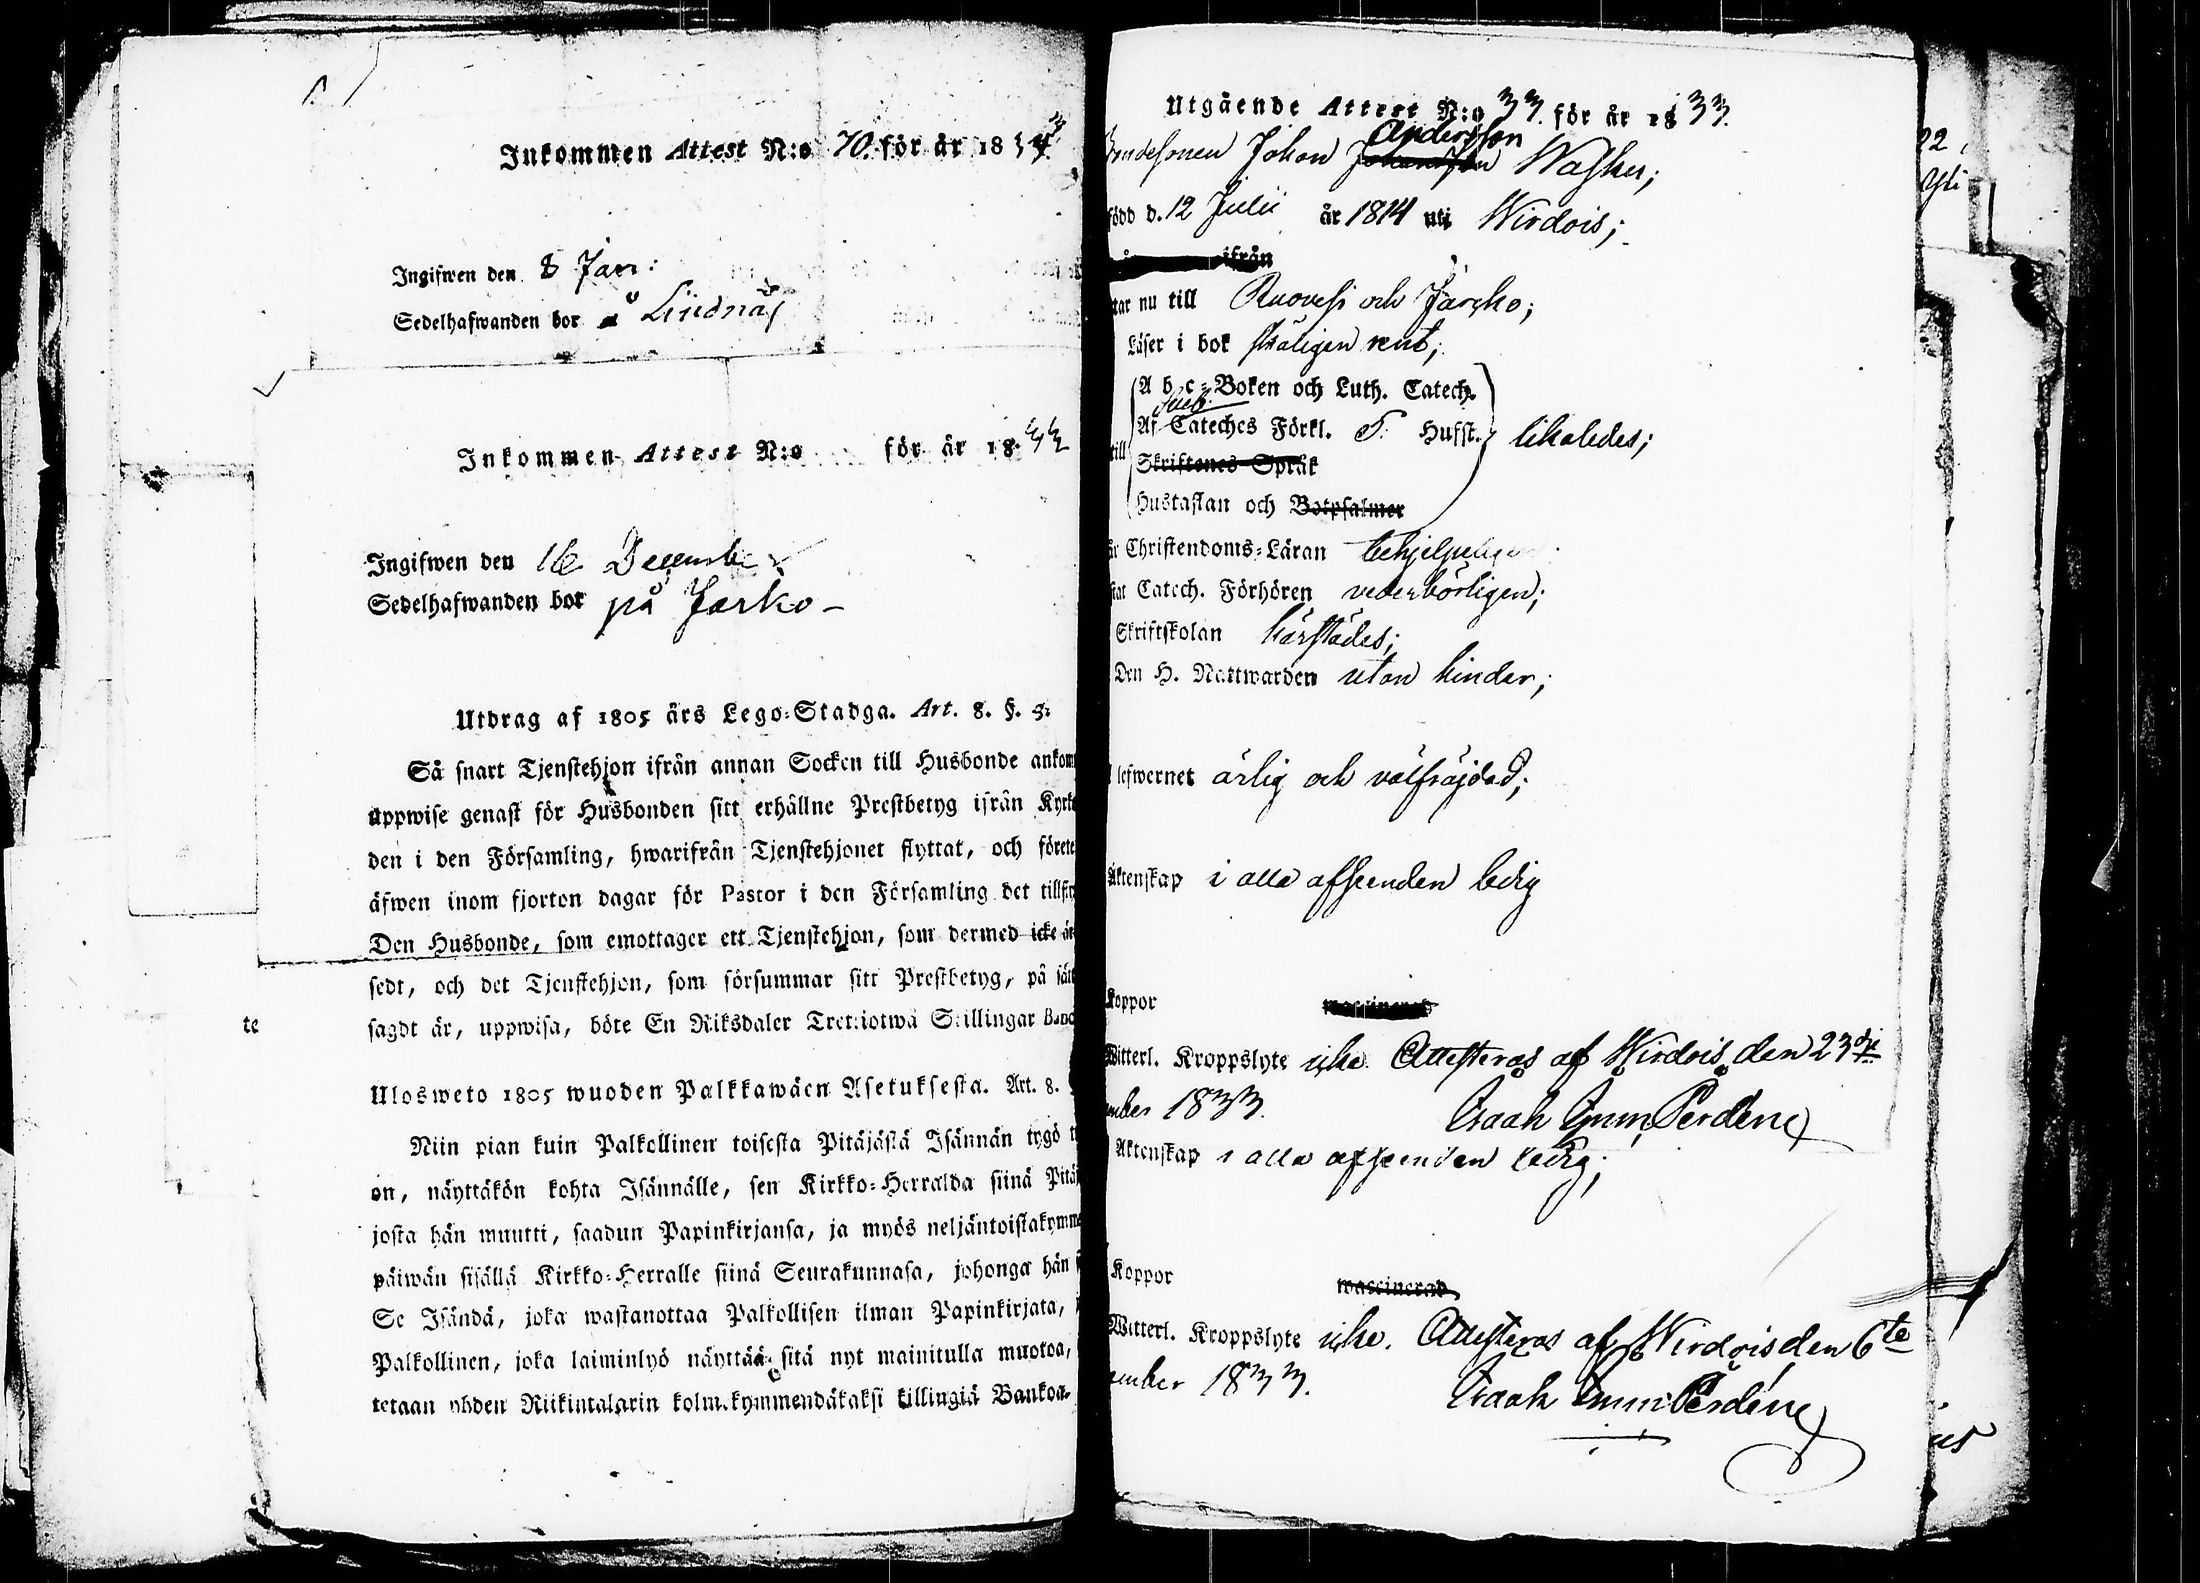 Inkommen Attest N:o 70. för år 1834
Ingifwen den 8 Jan:
Sedelhafwanden bor å Lindnäs
Inkommen Attest N:o för år 1833
Ingifwen den 16 December
Sedelhafwanden bor på Jarko -
Utdrag af 1805 års Lego-Stadga. Art. 8. §. 3.
Så snart Tjenstehjon ifrån annan Socken till Husbonde ankom
uppwise genast för Husbonden sitt erhållne Prestbetyg ifrån Kyrko
den i den Församling, hwarifrån Tjenstehjonet flyttat, och förete
äfwen inom fjorton dagar för Pastor i den Församling det tillfly
Den Husbonde, som emottager ett Tjenstehjon, som dermed icke är
sedt, och det Tjenstehjon, som försummar sitt Prestbetyg, på sätt
sagdt är, uppwisa, böte En Riksdaler Trettiotwå Skillingar Banco
te
Ulosweto 1805 wuoden Palkkawäen Asetuksesta. Art. 8.
Niin pian kuin Palkollinen toisesta Pitäjästä Isännän tygö t
on, näyttäkön kohta Isännälle, sen Kirkko-Herralda siinä Pitäj
josta hän muutti, saadun Papinkirjansa, ja myös neljäntoistakymme
päiwän sisällä Kirkko-Herralle siinä Seurakunnasa, johonga hän
Se Isändä, joka wastanottaa Palkollisen ilman Papinkirjata,
Palkollinen, joka laiminlyö näyttää sitä nyt mainitulla muotoa,
tetaan yhden Riikintalarin kolmekymmendäkaksi killingiä Bankoa.
Utgående Attest N:o 33. för år 1833.
Andersson
Bondesonen Johan Johansson Wasker;
född d. 12 Julii år 1814 uti Wirdois;
ifrån
tar nu till Ruovesi och Jarcko;
Läser i bok skäligen rent;
A b c-Boken och Luth. Catech.
Sveb.
Af Cateches Förkl. S. Hufst. likaledes;
till
Skriftenes Språk
Hustaflan och Botpsalmer
är Christendoms-Läran behjelpeligen
stat Catech. Förhören vederbörligen;
Skriftskolan härstädes;
Den H. Nattwarden utan hinder;
lefwernet ärlig och välfräjdad;
Äktenskap i alla afseenden ledig
Koppor waccinerad
Witterl. Kroppslyte icke. Attesteras af Wirdois den 23dje
ember 1833. Isaak Imm. Perdene
Äktenskap i alla afseenden ledig;
Koppor waccinerad
Witterl. Kroppslyte icke. Attesteras af Wirdois den 6te
ember 1833. Isaak Imm: Perdene
22,